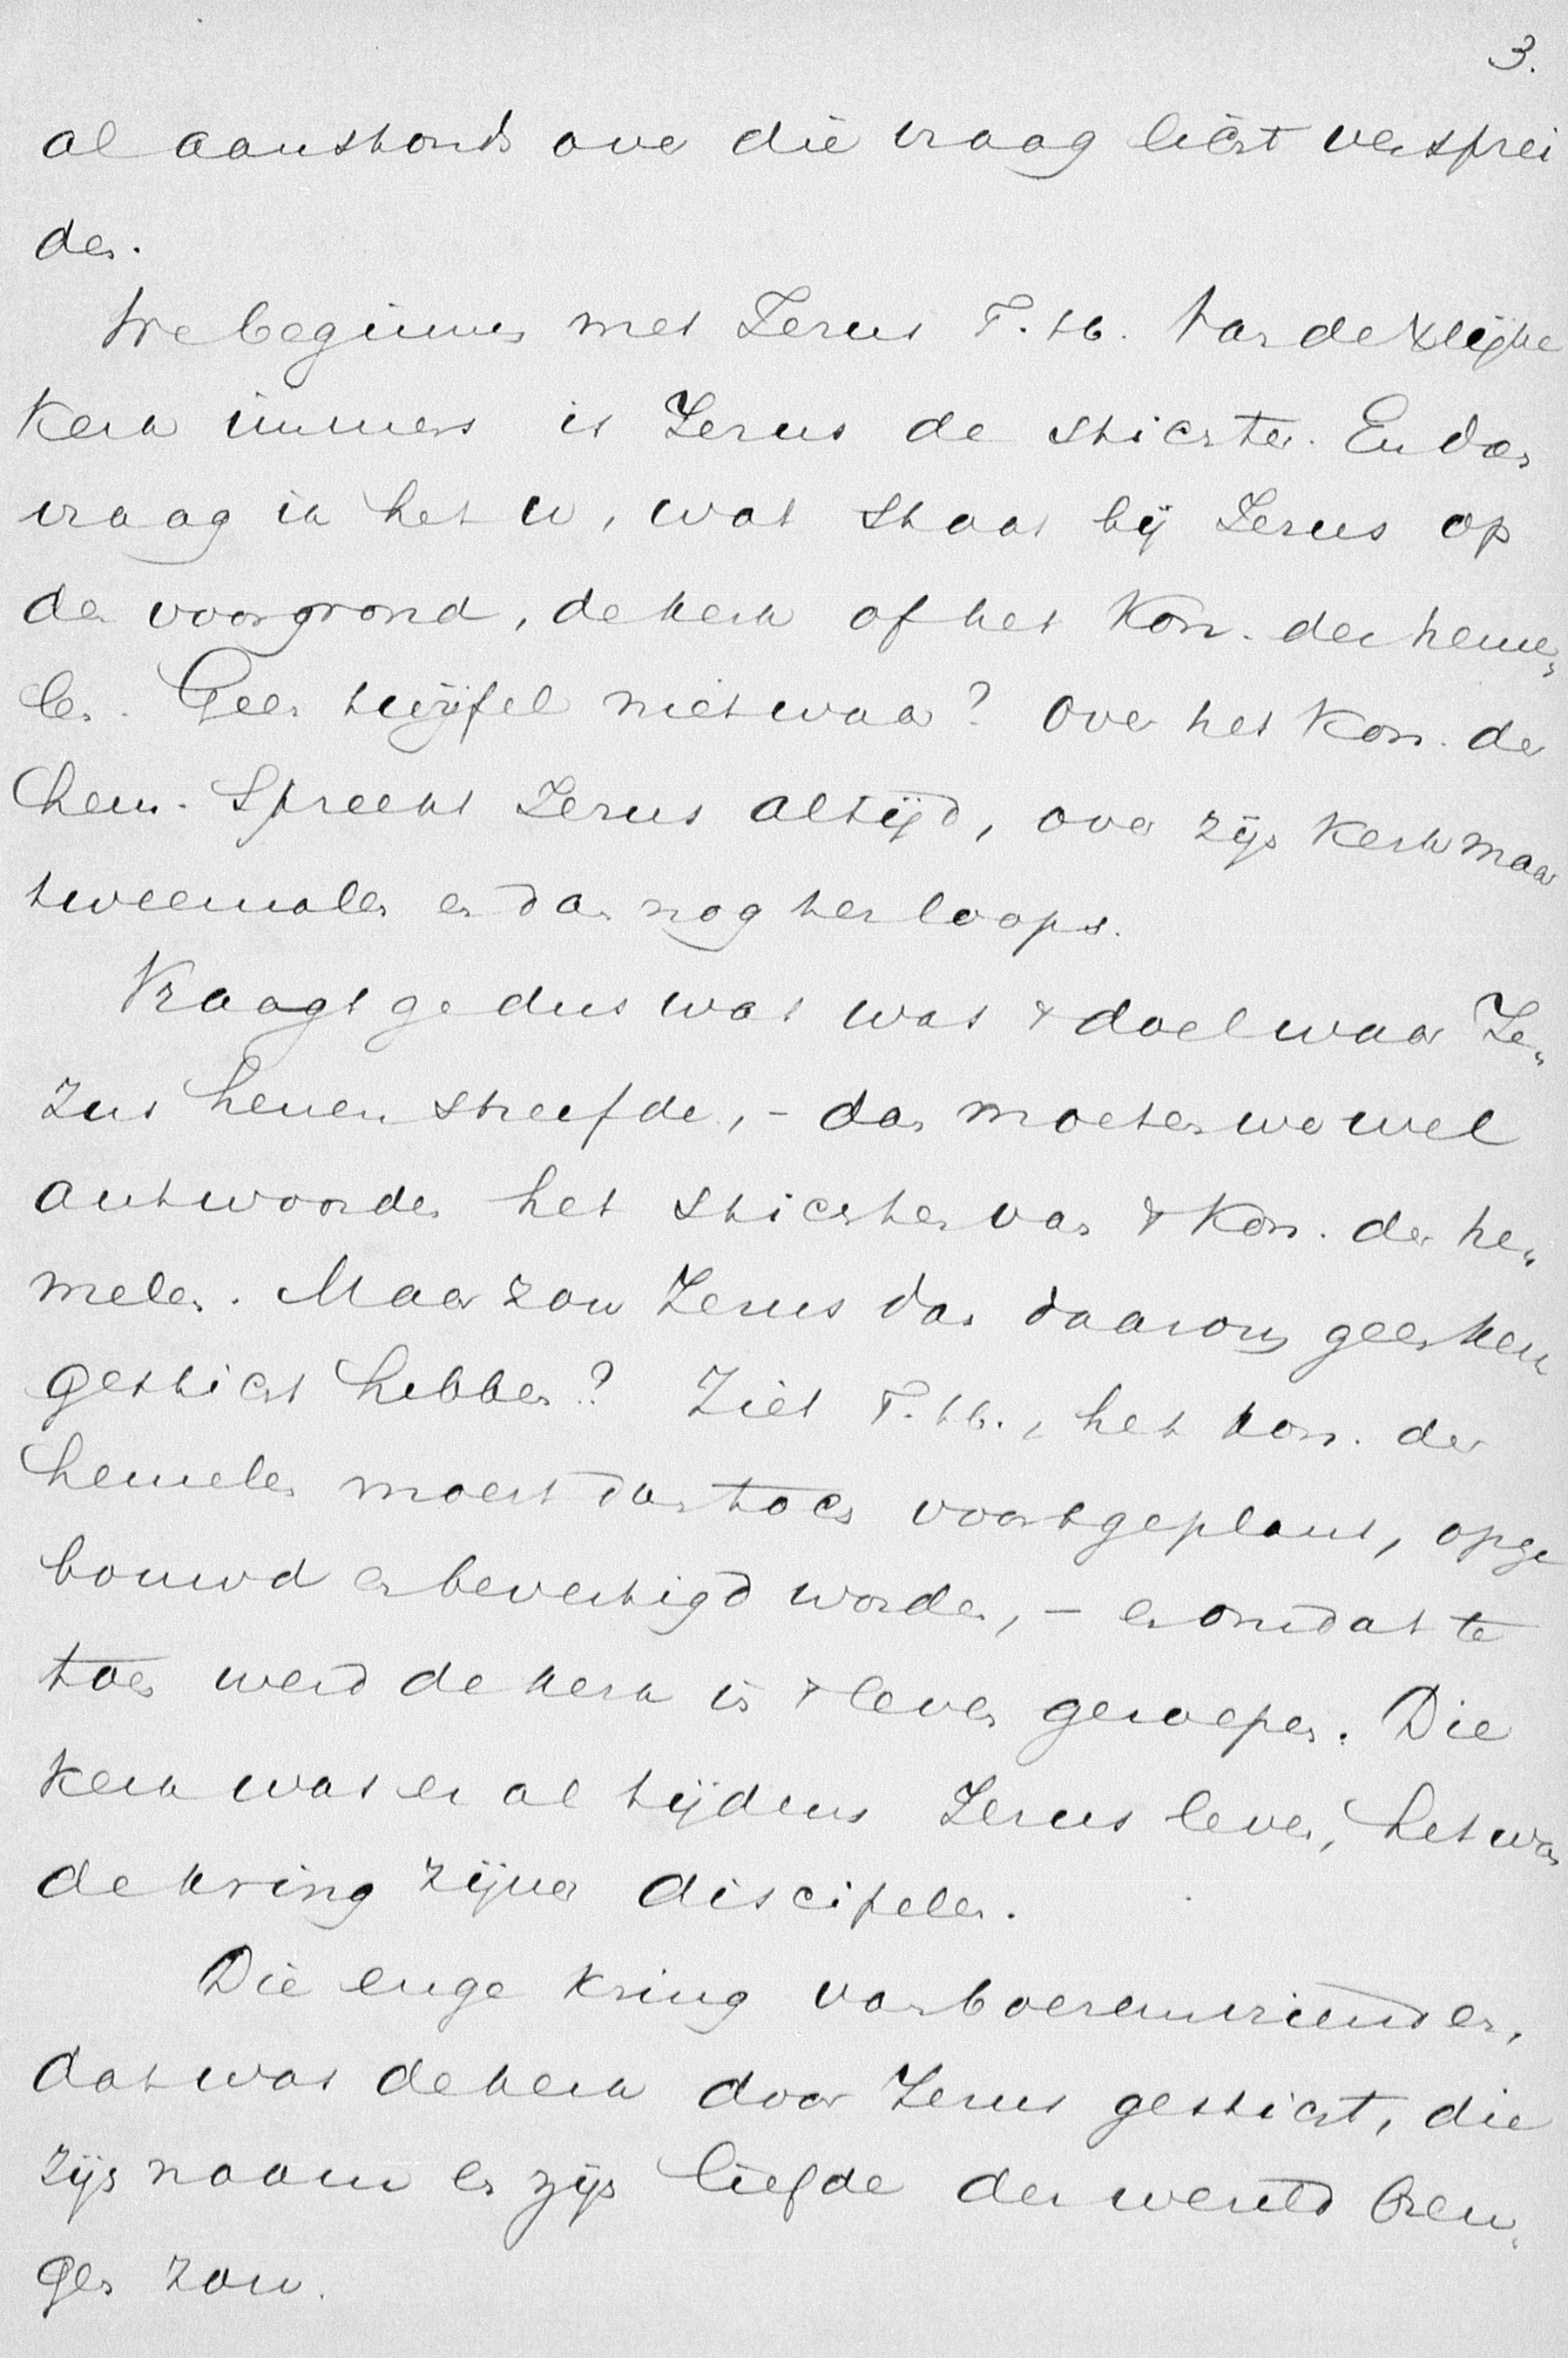 3.
al aanstonds over die vraag licht versprei
den.
We beginnen met Jezus T. H. Van de Xlijke
Kerk immers is Jezus de stichter. En dan
vraag ik het u, wat staat bij Jezus op
den voorgrond, de kerk of het Kon. der heme„
len. Geen twijfel nietwaar? Over het Kon. der
hem. spreekt Jezus altijd, over zijn Kerk maar
tweemalen en dan nog terloops.
Vraagt ge dus wat was 't doel waar Je„
zus henen streefde, - dan moeten we wel
antwoorden het stichten van 't Kon. der he„
melen. Maar zou Jezus dan daarom geen kerk
gesticht hebben? Ziet T. H., het kon. der
hemelen moest dan toch voortgeplant, opge
bouwd en bevestigd worden, - en om dat te
doen werd de kerk in 't leven geroepen. Die
Kerk was er al tijdens Jezus leven, het was
de kring zijner discipelen.
Die enge kring van boezemvrienden,
dat was de kerk door Jezus gesticht, die
zijn naam en zijn liefde der wereld bren„
gen zou.